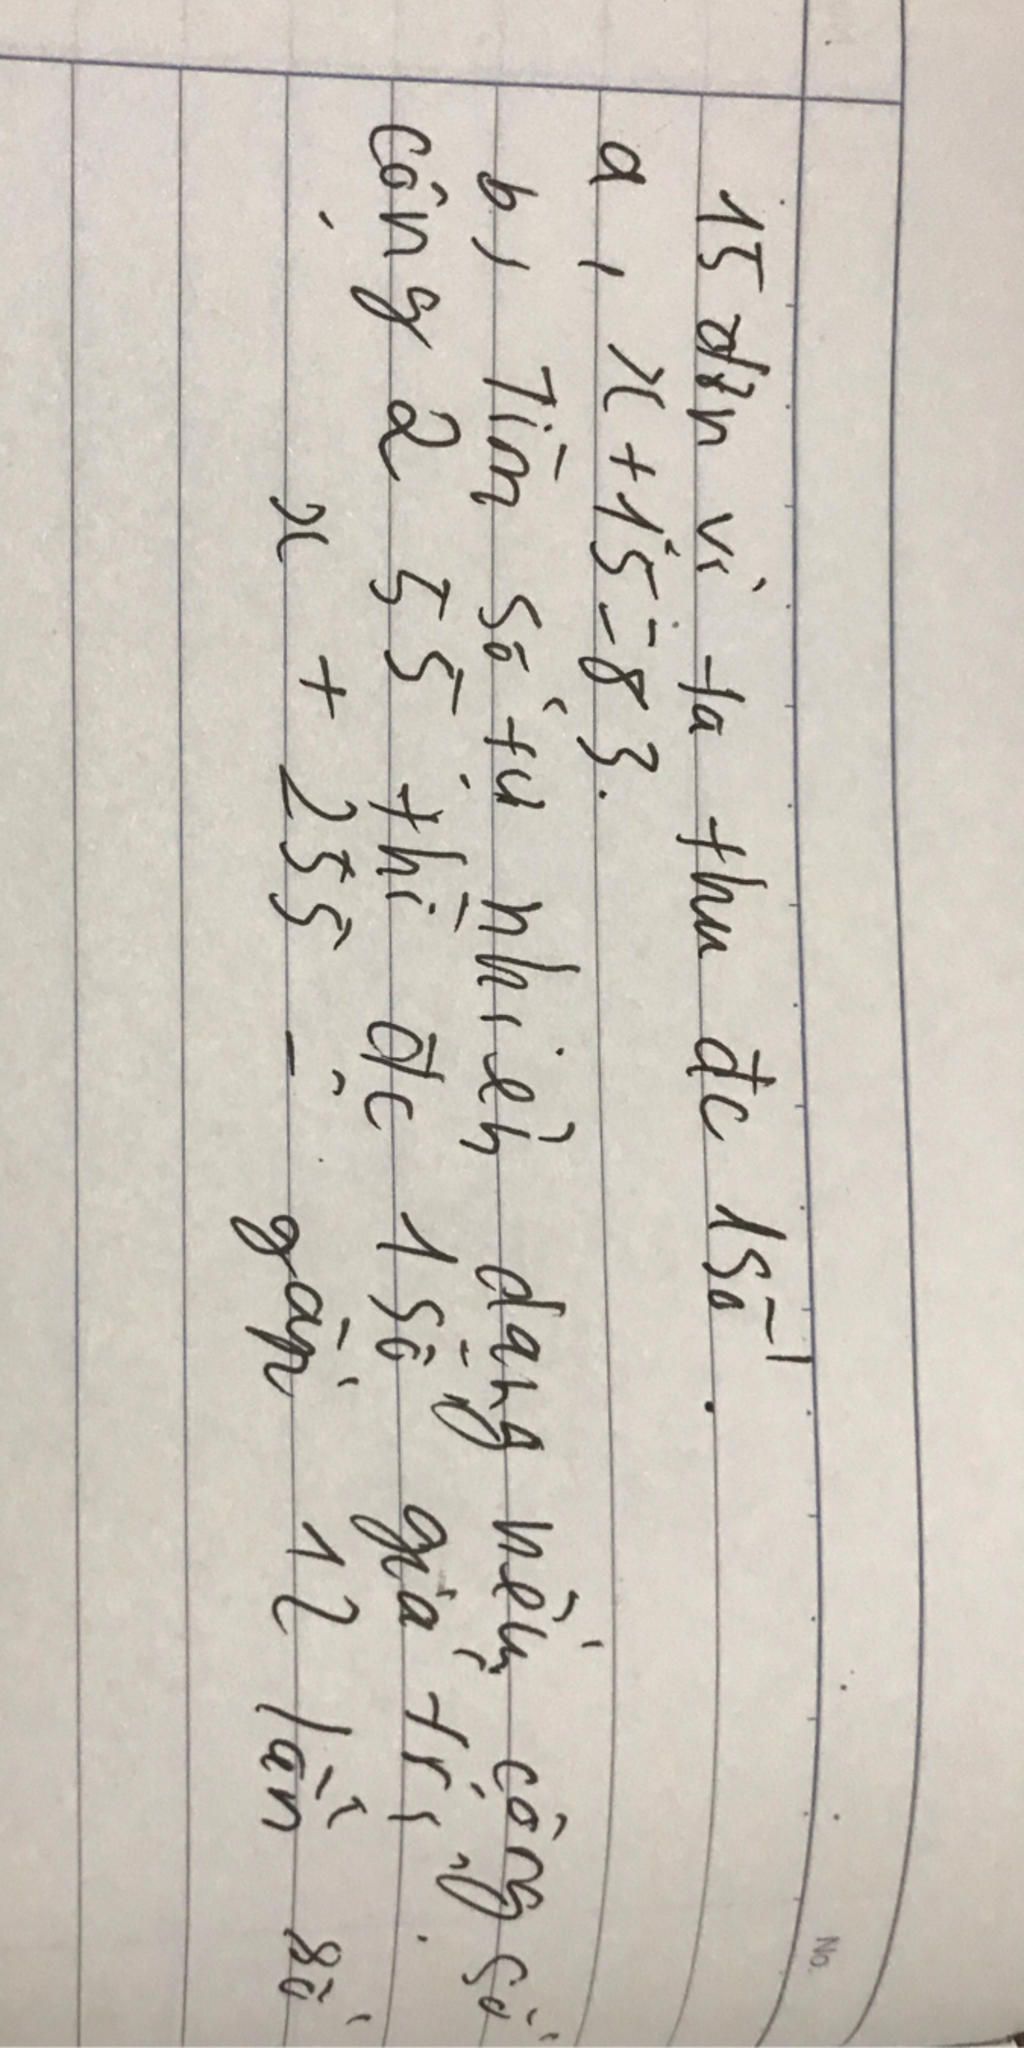 No.
15 đơn vị ta thu đc 1 số
a, x + 15 = 83.
b, Tìm số tự nhiên dạng nếu cộng số
cộng 2 55 thì đc 1 số giá trị
x + 255 = gấp 12 lần số